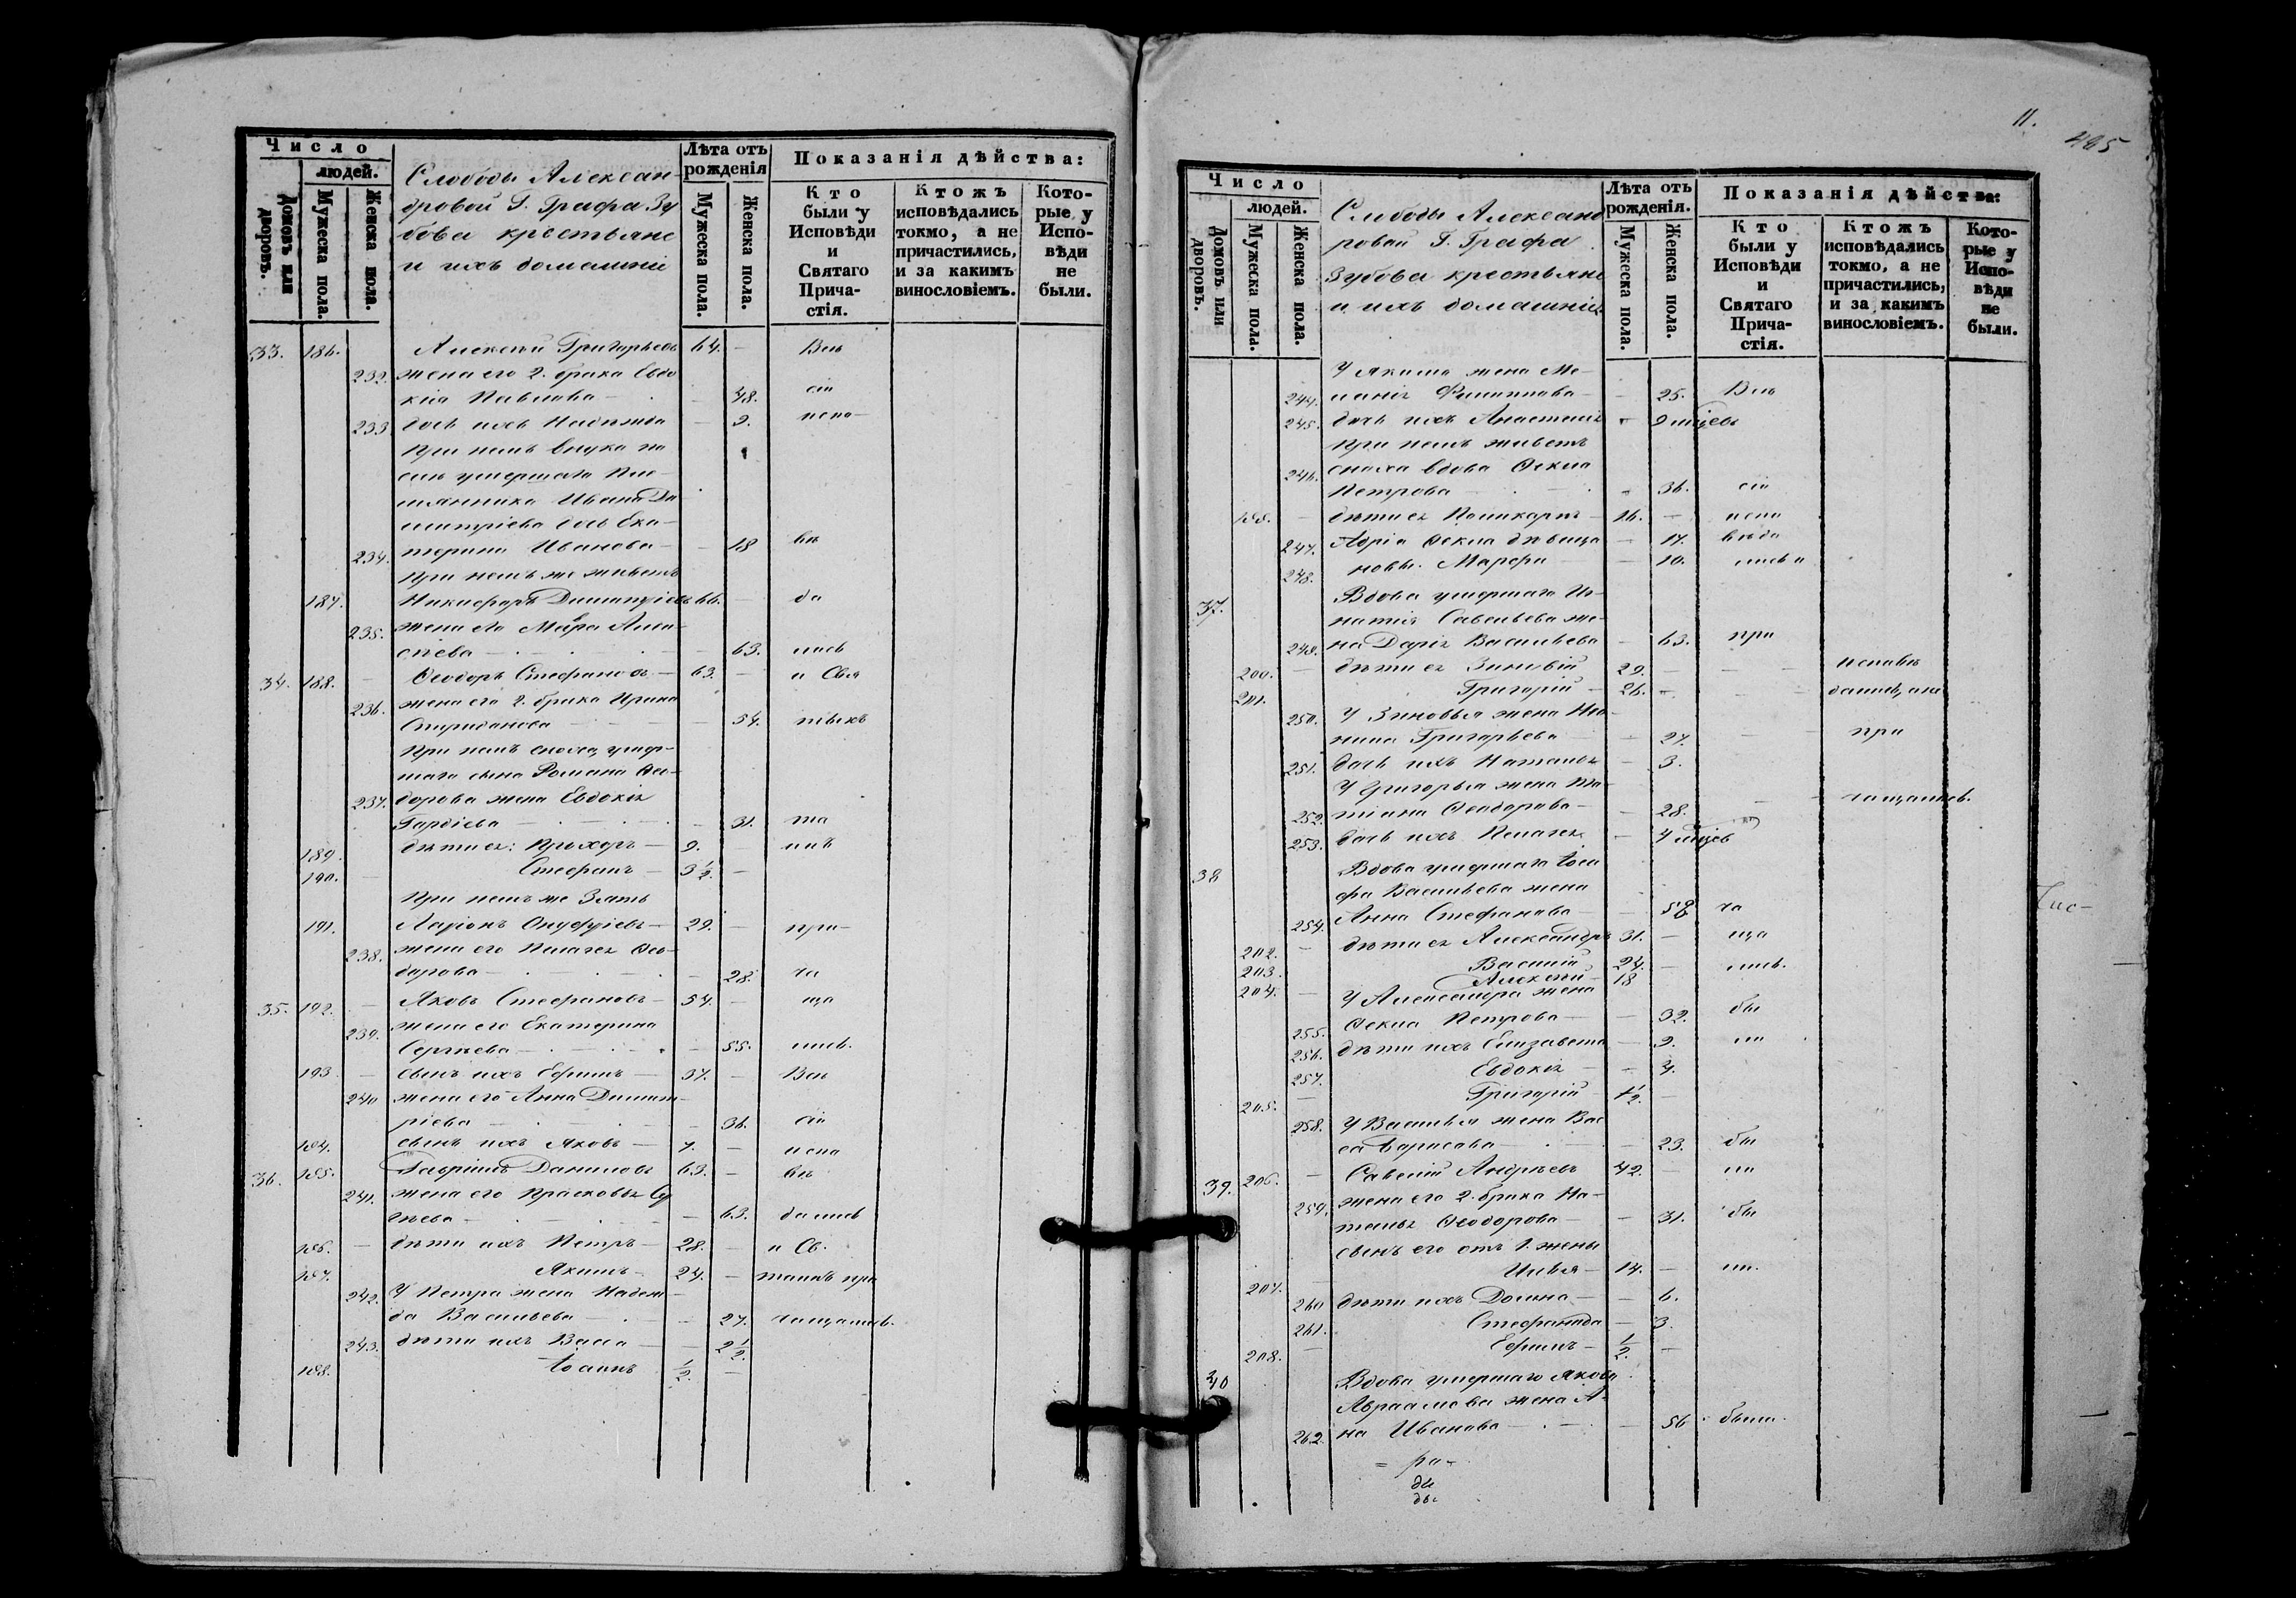 Число
людей.
Домовъ или дворовъ.
Мужеска пола.
Женска пола.
Слободы Алексан-
дровой Г. Графа Зу
бова крестьяне
и ихъ домашніе
Лѣта отъ рожденія
Мужеска пола.
Женска пола.
Показанія дѣйства:
Кто были у Исповѣди и Святаго Прича-стія.
Ктожъ исповѣдались токмо, а не причастились, и за какимъ винословіемъ.
Кото-рые у Испо-вѣди не были.
33. 186. Алексѣй Григорьевъ 64. — Всѣ
232. жена его 2. брака Евдо
кія Павлова — 48. сіи
233. дочь ихъ Надежда — 9. испо-
При немъ внука по
сынѣ умершаго Пле-
мянника Ивана Ди
митріева дочь Ека-
234. терина Иванова — 18 вѣ
При немъ же живетъ
187. Никифоръ Димитріевъ 66. — да
235. жена его Мавра Алек-
сѣева — 63. лись
34. 188. — Ѳеодоръ Стефановъ — 63. — и Свя
236. жена его 2. брака Ирина
Спиридонова — 54. тыхъ
При немъ сноха, умер-
шаго сына Романа Ѳео-
237. дорова жена Евдокія
Гордіева — 31. та
189. дѣти ея: Прохоръ — 9. — инъ
190. — Стефанъ — 3 1/2. —
При немъ же Зять
191. Ларіонъ Онуфріевъ — 29. — при-
238. жена его Пелагея Ѳео-
дорова — 28. ча
35. 192. — Яковъ Стефановъ — 54. — ща
239. жена его Екатерина
Сергѣева — 55. лись.
193 — сынъ ихъ Ефимъ — 37. — Всѣ
240 жена его Анна Димит-
ріева — 36. сіи
194. сынъ ихъ Яковъ — 7. — испо
36. 195. Гавріилъ Даниловъ 63. — вѣ
241. жена его Прасковья Ер
гѣева — 63. дались
196. — дѣти ихъ Петръ — 28. — и Св.
197. Якимъ — 24. — таинъ при
242. У Петра жена Надеж-
да Васильева — 27. чащались.
243. дѣти ихъ Васса — 2 1/2.
198. Іоаннъ 1/2. —
11.
405
Число
людей.
Домовъ или дворовъ.
Мужеска пола.
Женска пола.
Слободы Александ
ровой Г. Графа
Зубова крестьяне
и ихъ домашніе
Лѣта отъ рожденія.
Мужеска пола.
Женска пола.
Показанія дѣйства:
Кто были у Исповѣди и Святаго Прича-стія.
Ктожъ исповѣдались токмо, а не причастились, и за какимъ винословіемъ.
Кото-рые у Испо-вѣди не были.
У Якима жена Ме-
244. ланія Филиппова — 25. Всѣ
245. дочь ихъ Анастасія — 9 мѣсяцевъ
При немъ живетъ
246. сноха вдова Ѳекла
Петрова — 36. сіи
199. — дѣти ея Поликарпъ — 16. — испо
247. Адріа Ѳекла дѣвица — 17. вѣда
248. новы. Марѳа — 10. лись и
37. Вдова умершаго Иг-
натія Савельева же-
249. на Дарія Васильева — 63. при
200. — дѣти ея Зиновій 29. — исповѣ
201. Григорій — 26. — дались, а не
250. У Зиновья жена Не-
нила Григорьева — 27. — при
251. дочь ихъ Наталья — 3.
У Григорья жена Та-
252. тіана Ѳеодорова — 28. — чащались.
253. дочь ихъ Пелагея — 4 мѣсяцевъ
38 Вдова умершаго Іоси
фа Васильева жена
254. Анна Стефанова — 58 ча
202. — дѣти ея Александръ 31. — ща
203. Василій 24. — лись.
204. — Алексѣй — 18
У Александра жена
255. Ѳекла Петрова — 32. бы
256. дѣти ихъ Елизавета — 9. ли
257. Евдокія — 4.
205. — Григорій — 1 1/2. —
258. У Василья жена Вас
са Борисова — 23. бы
39. 206. — Савелій Андреевъ 42. — ли
259. жена его 2. брака На-
талья Ѳеодорова — 31. бы
сынъ его отъ 1. жены
207. — Илья — 14. — ли.
260 дѣти ихъ Домна — 6.
261. Стефанида — 3.
208. — Ефимъ — 1/2. —
40 Вдова умершаго Якова
Авраамова жена А-
262. на Иванова — 56 были.
= ра-
ди
ды
Чис-